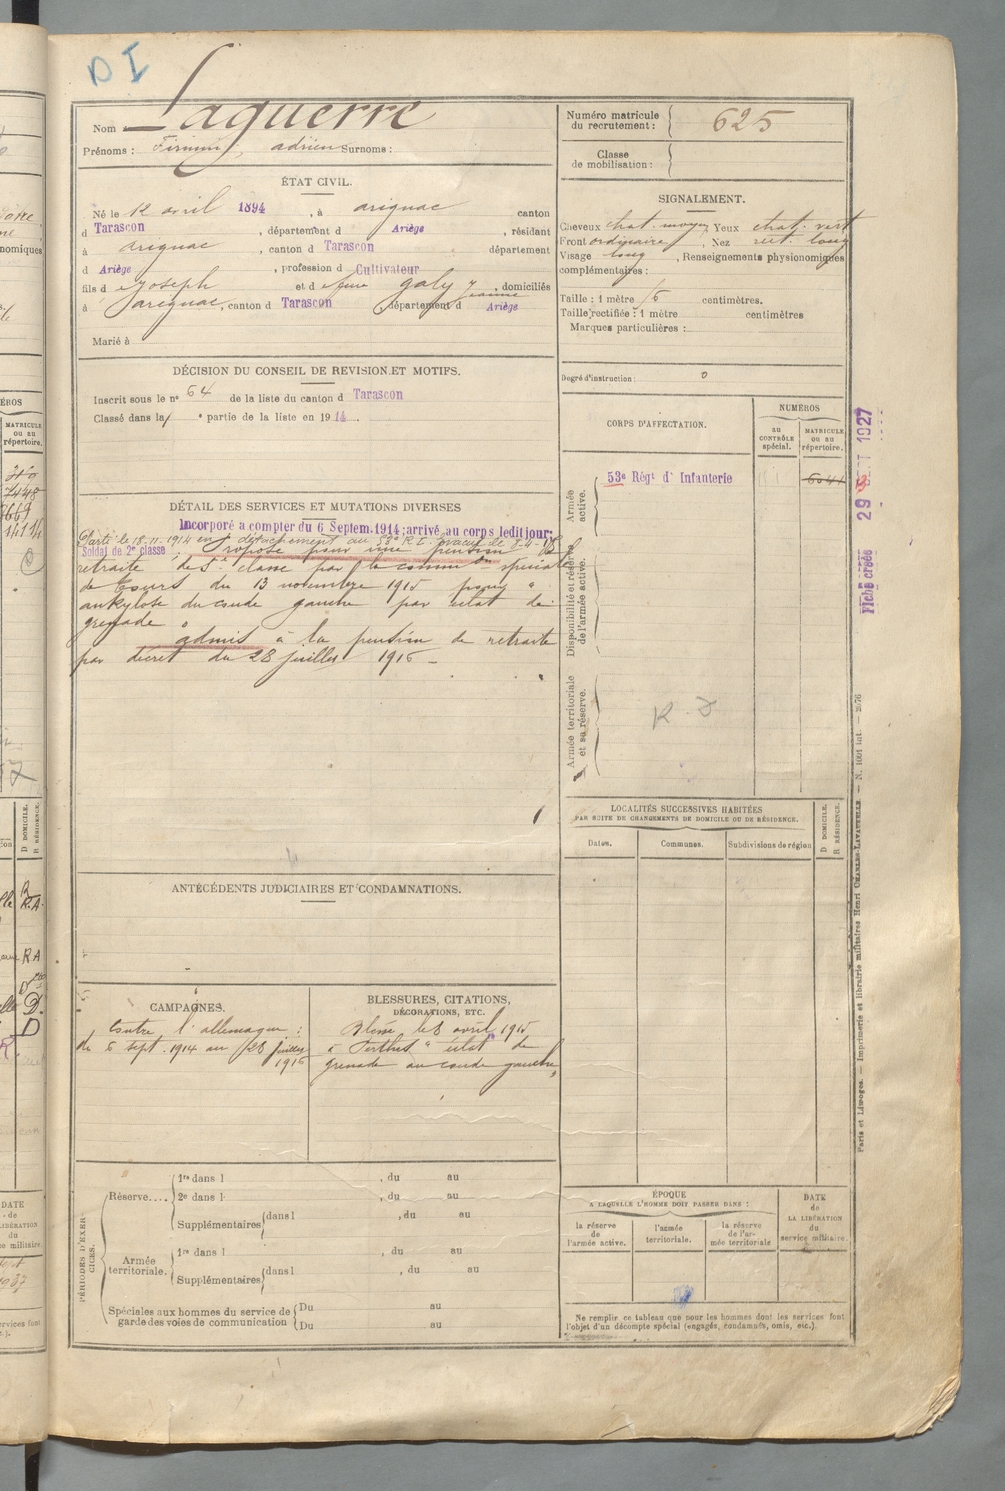 D I
Nom Laguerre
Prénoms : Firmin, adrien Surnoms :
Numéro matricule du recrutement : 625
Classe de mobilisation :
ÉTAT CIVIL.
Né le 12 avril 1894, à arignac canton
d Tarascon, département d Ariège, résidant
à arignac, canton d Tarascon département
d Ariège, profession d Cultivateur
fils d e Joseph et d e feue galy jeanne, domiciliés
à arignac, canton d Tarascon, département d Ariège
Marié à
SIGNALEMENT.
Cheveux chat. moyen, Yeux chat. vert
Front ordinaire, Nez rect. long
Visage long, Renseignements physionomiques
complémentaires :
Taille : 1 mètre 6 centimètres.
Taille rectifiée : 1 mètre centimètres
Marques particulières :
Degré d'instruction : 0
DÉCISION DU CONSEIL DE REVISION ET MOTIFS.
Inscrit sous le n° 64 de la liste du canton d Tarascon
Classé dans la 1e partie de la liste en 1914.
CORPS D'AFFECTATION.
NUMÉROS
au CONTRÔLE spécial.
MATRICULE ou au répertoire.
Armée active.
53e Régt d' Infanterie
Disponibilité et réserve de l'armée active.
Armée territoriale et sa réserve.
R. D
DÉTAIL DES SERVICES ET MUTATIONS DIVERSES
Incorporé a compter du 6 Septem. 1914; arrivé au corps ledit jour;
Parti le 18.11.1914 en détachement au 53e R.I. Evacué le 8-4-15
Soldat de 2e classe, Proposé pour une pension de
retraite de 5e classe par la common spéciale
de Tours du 13 novembre 1915 pour "
ankylose du coude gauche par éclat de
grenade"
admis à la pension de retraite
par décret du 28 juillet 1916 -
29 SEPT 1927
Fiche créée
LOCALITÉS SUCCESSIVES HABITÉES
PAR SUITE DE CHANGEMENTS DE DOMICILE OU DE RÉSIDENCE.
Dates.
Communes.
Subdivisions de région
D DOMICILE.
R RÉSIDENCE.
ANTÉCÉDENTS JUDICIAIRES ET CONDAMNATIONS.
CAMPAGNES.
Contre l'allemagne :
du 6 sept. 1914 au 28 juillet
1916
BLESSURES, CITATIONS,
DÉCORATIONS, ETC.
Blessé le 8 avril 1915
à Perthes "éclat de
grenade au coude gauche"
PÉRIODES D'EXERCICES.
Réserve....
1re dans l , du au
2e dans l , du au
Supplémentaires dans l , du au
Armée territoriale.
1re dans l , du au
Supplémentaires dans l , du au
Spéciales aux hommes du service de
garde des voies de communication
Du au
Du au
ÉPOQUE
A LAQUELLE L'HOMME DOIT PASSER DANS :
la réserve de l'armée active.
l'armée territoriale.
la réserve de l'armée territoriale
DATE de LA LIBÉRATION du service militaire.
Ne remplir ce tableau que pour les hommes dont les services font
l'objet d'un décompte spécial (engagés, condamnés, omis, etc.).
Paris et Limoges. — Imprimerie et librairie militaires Henri CHARLES-LAVAUZELLE. — N. 1001 int. — 2676